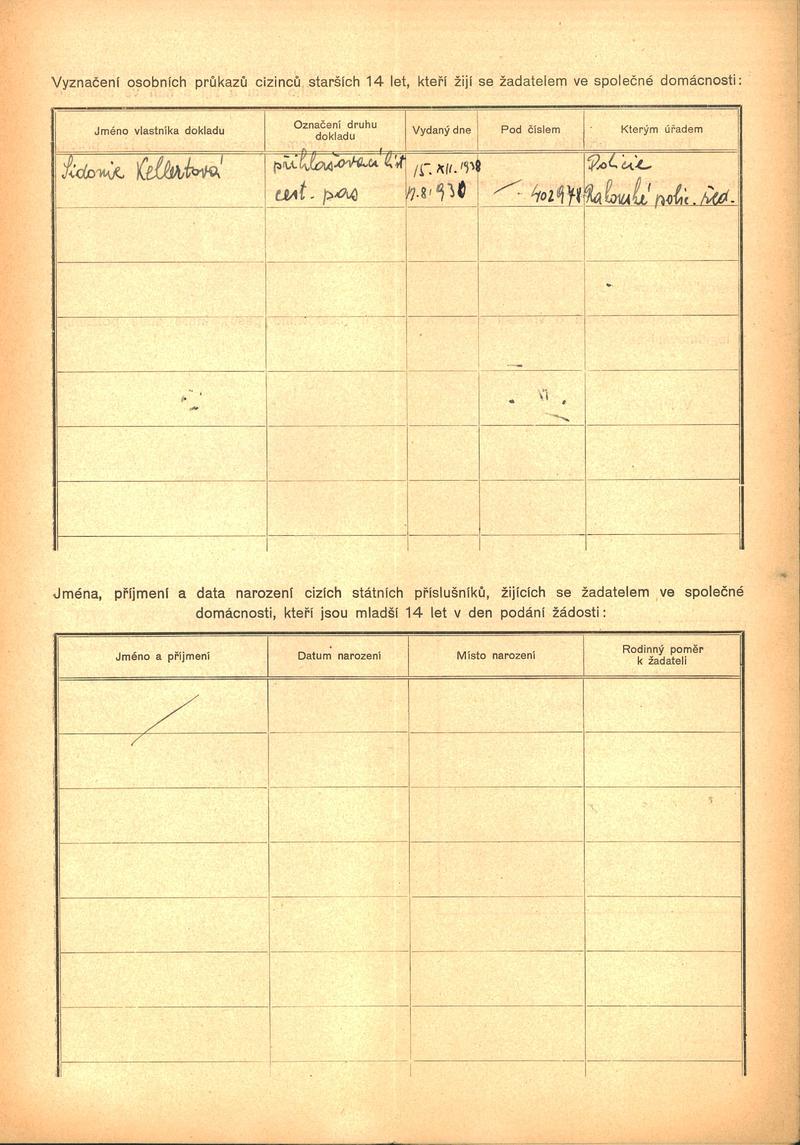 Vyznačení osobních průkazů cizinců starších 14 let, kteří žijí se žadatelem ve společné domácnosti:
Jméno vlastníka dokladu
Označení druhu
dokladu
Vydaný dne
Pod číslem
Kterým úřadem
Sidonie Kellertová přihlašovací list 15. XII. 1938 Policie
cest. pas 17.8.1930 402978 polic. řed.
Jména, příjmení a data narození cizích státních příslušníků, žijících se žadatelem ve společné
domácnosti, kteří jsou mladší 14 let v den podání žádosti:
Jméno a příjmení
Datum narození
Místo narození
Rodinný poměr
k žadateli